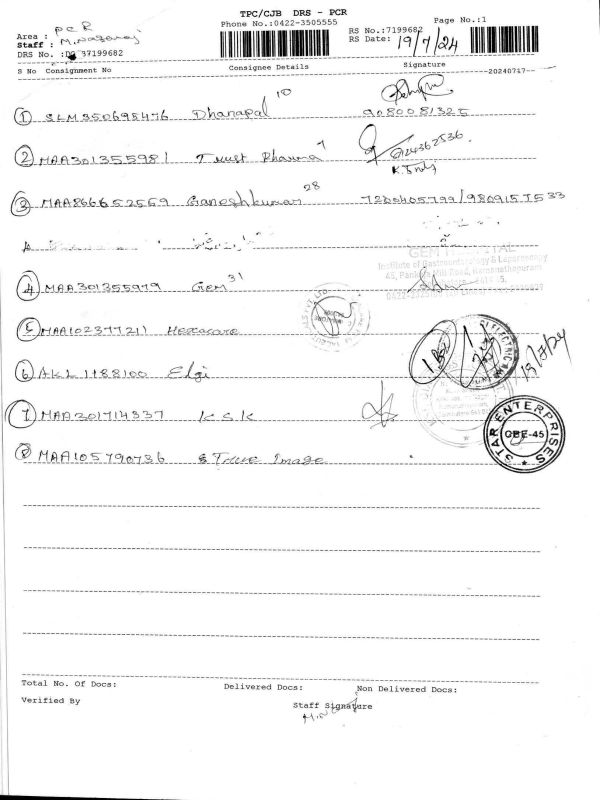 TPC/CJB DRS - PCR
Phone No.:0422-3505555
Page No.:1
Area : PCR
RS No.:7199682
Staff : M.Nagaraj
RS Date: 19/7/24
DRS No. : 37199682
S No Consignment No Consignee Details Signature
20240717
1 SLM350698476 Dhanapal 10
9080081325
2 MAA301355981 Trust Pharma 7
6124362536
3 MAA866652559 Ganeshkumar 28
GEM HOSPITAL
Institute of Gastroenterology & Laparoscopy
45, Pankaja Mill Road, Ramanathapuram
4 MAA301355979 Gem 31
5 MAA102377211 Hexacare
18/7/24
6 AKL1188100 Elgi
7 MAA301714337 K.S.K
STAR ENTERPRISES
CBE-45
8 MAA105790736 True Image
Total No. Of Docs: Delivered Docs: Non Delivered Docs:
Verified By Staff Signature